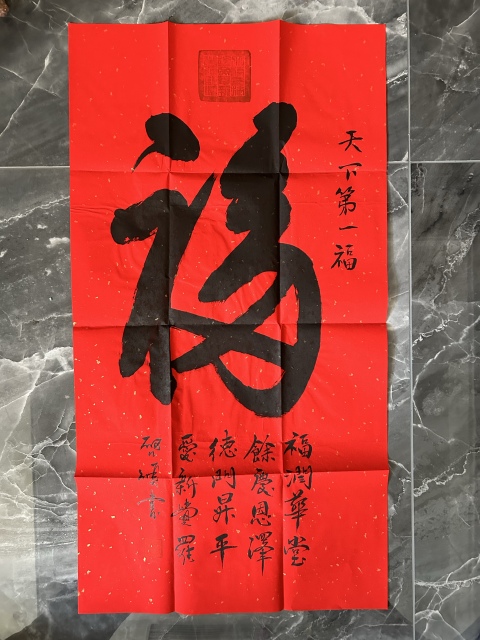 天下第一福
福
福潤華堂
餘慶恩澤
德門昇平
愛新覺羅